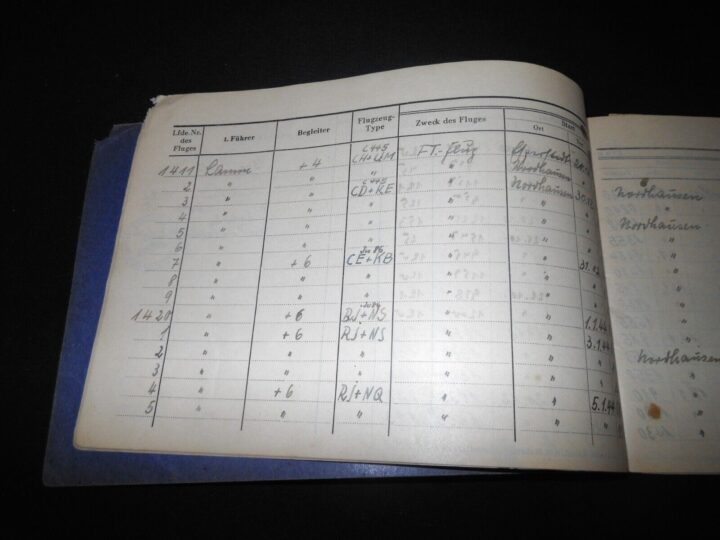 Lfde. Nr. des Fluges 1. Führer Begleiter Flugzeug-Type Zweck des Fluges Ort
1411 +4 C445 CH+UM FT.-Flug
2 " " " " Nordhausen
3 " " C445 CD+KE " Nordhausen 30.12.
4 " " " " "
5 " " " " "
6 " " " " "
7 " +6 Ju 86 CE+KB " " 31.12
8 " " " " "
9 " " " " "
1420 " +6 Ju 86 RJ+NS " " 1.1.44
1 " +6 RJ+NS " " 3.1.44
2 " " " " "
3 " " " " "
4 " +6 RJ+NQ " " 5.1.44
5 " " " " "
Nordhausen
Nordhausen
"
"
"
"
"
Nordhausen
"
"
"